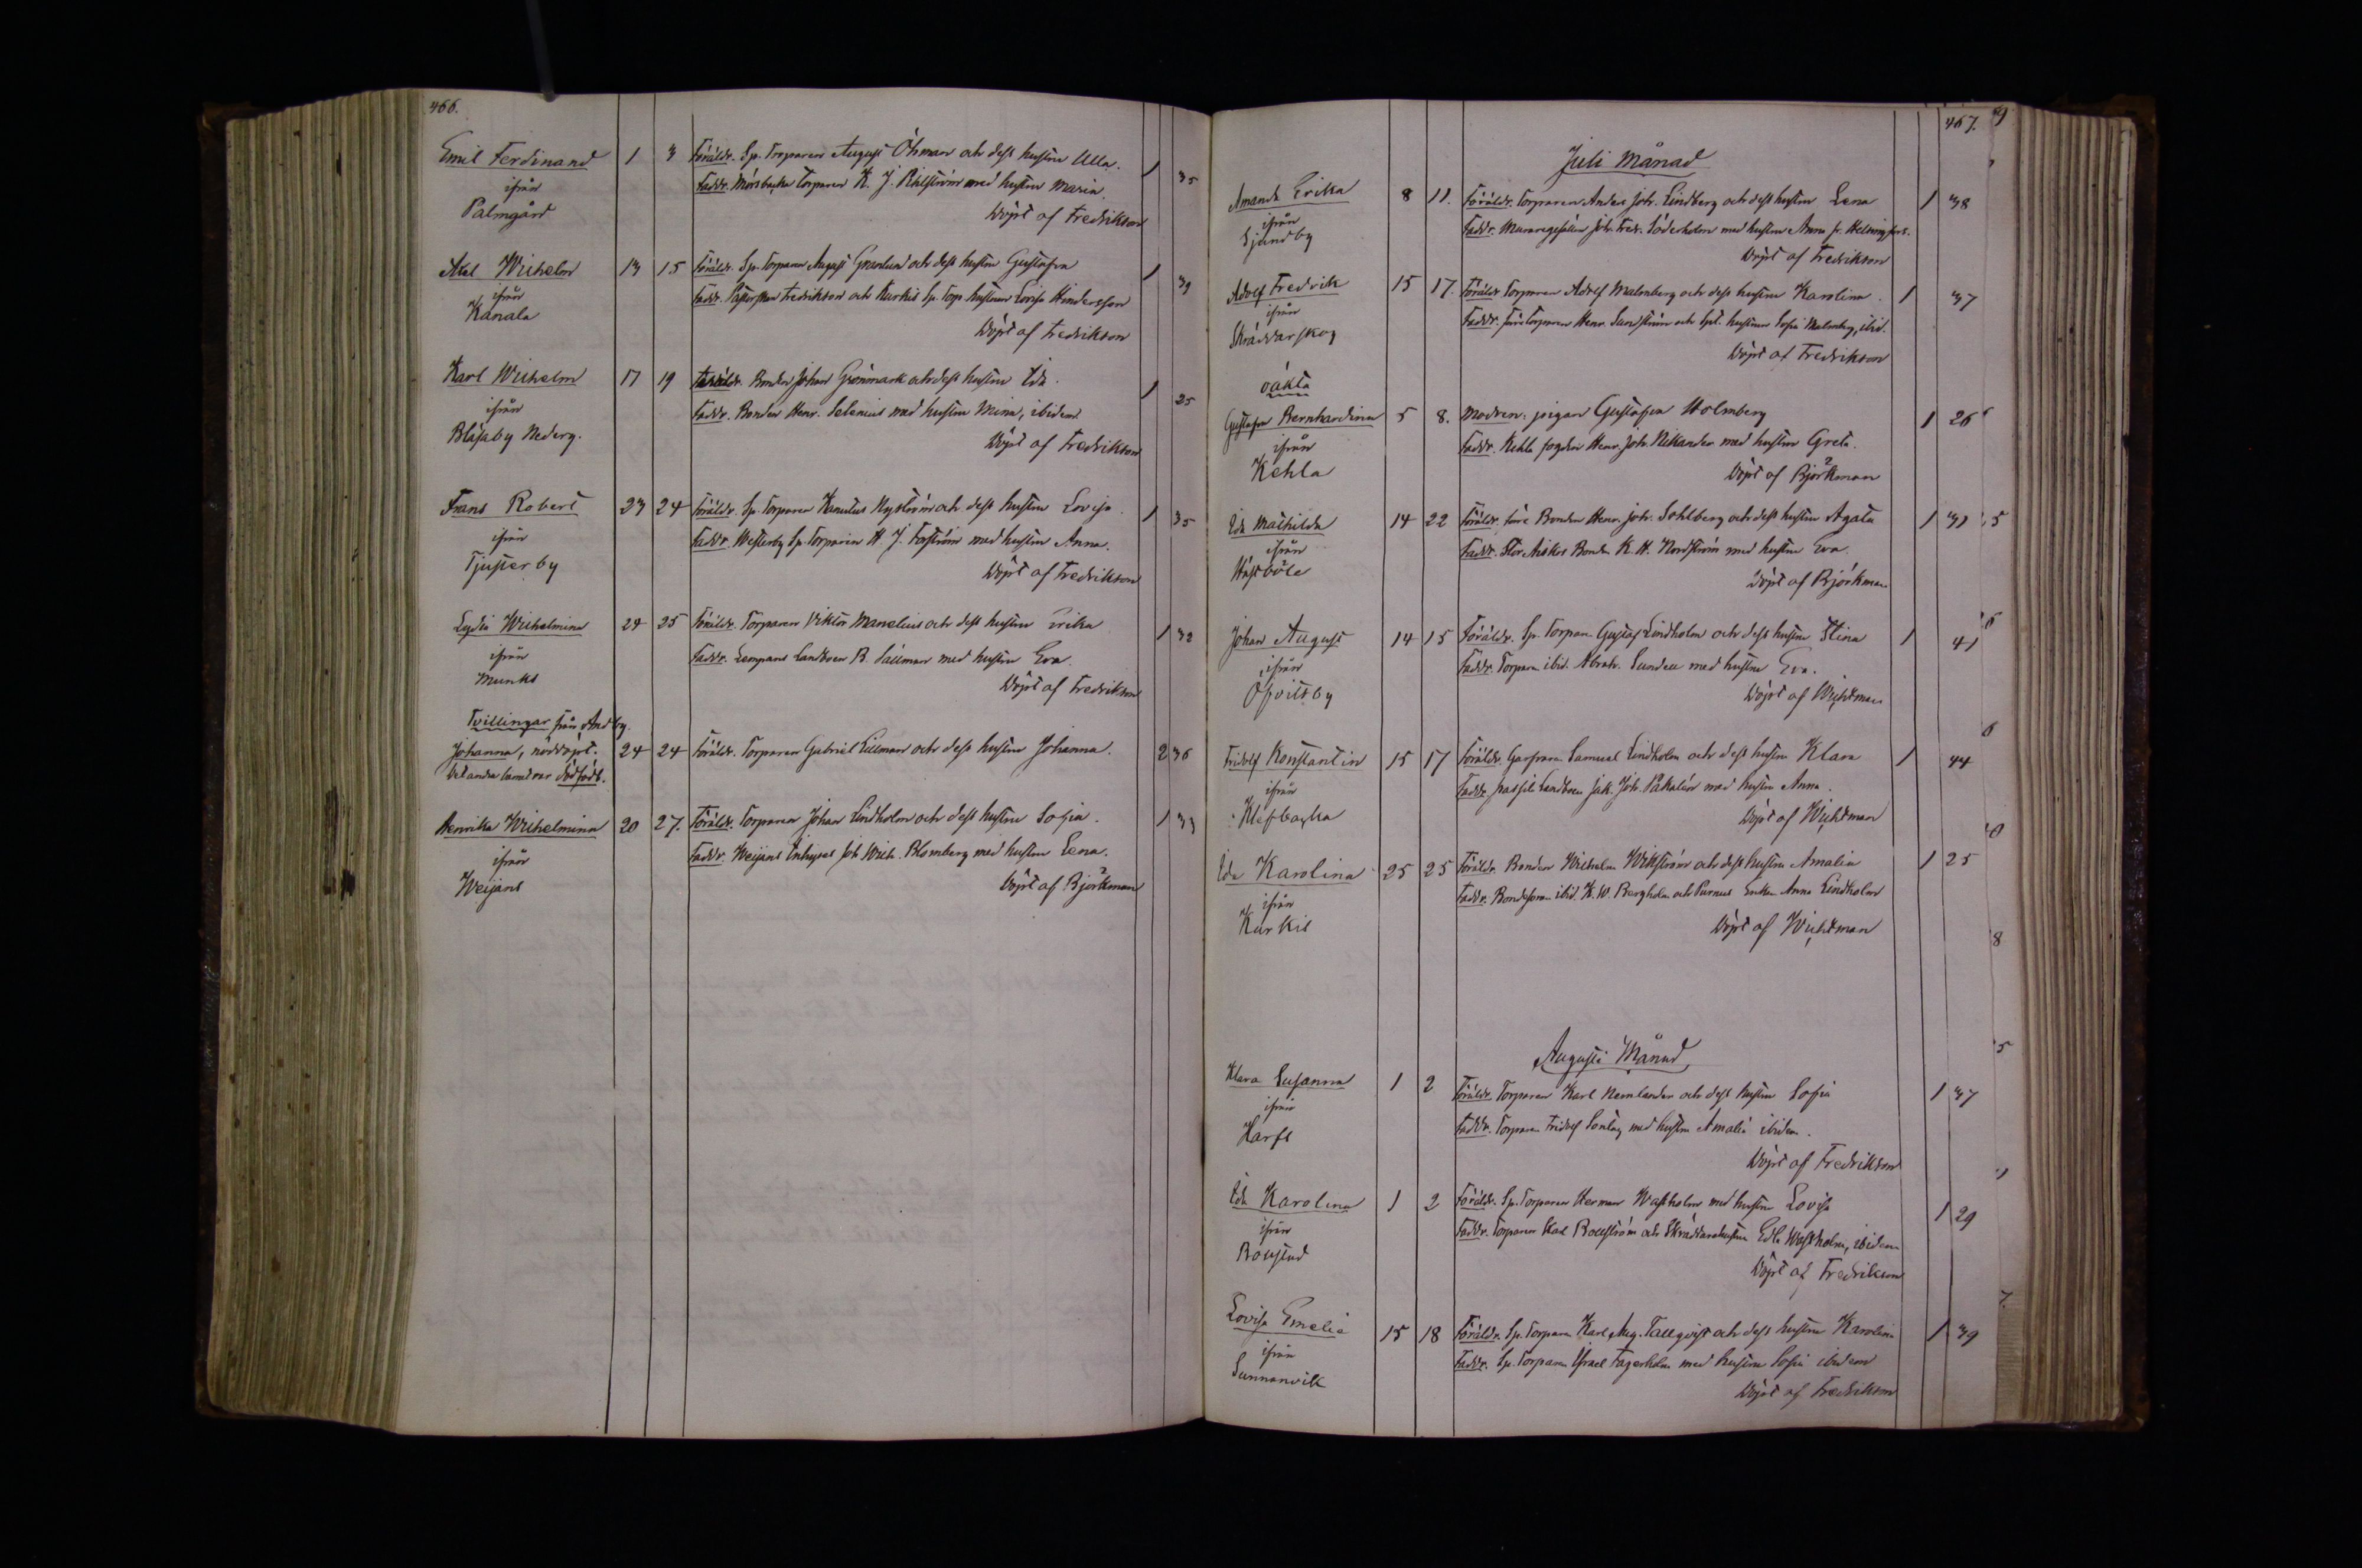 466.
Emil Ferdinand 1 3 Föräldr. Sp. Torparen August Öhman och dess hustru Ulla. 1 35
ifrån Faddr. Mörsbacka Torparen K. J. Ahlström med hustru Maria
Palmgård Döpt af Fredrikson
Axel Wilhelm 13 15 Föräldr. Sp. Torparen August Granlund och dess hustru Gustafva 1 39
ifrån Faddr. Fredrikson och Kurkis Sp. Torp. hustrun Lovisa Hindersson
Kanala Döpt af Fredrikson
Karl Wilhelm 17 19 Föräldr. Bonden Johan Grönmark och dess hustru Ida. 1 25
ifrån Faddr. Bonden Henr. Selenius med hustru Mina, ibidem
Bläsaby Nederg. Döpt af Fredrikson
Frans Robert 23 24 Föräldr. Sp. Torparen Nyström och dess hustru Lovisa. 1 35
ifrån Faddr. Westerby Sp. Torparen H. J. Forström med hustru Anna.
Tjusterby Döpt af Fredrikson
Lydia Wilhelmina 24 25 Föräldr. Torparen Viktor Manelius och dess hustru Erika 1 32
ifrån Faddr. Lempans Landboen B. Sällman med hustru Eva.
Munks Döpt af Fredrikson
Tvillingar från Andby.
Johanna, nöddöpt. 24 24 Föräldr. Torparen Gabriel Lillman och dess hustru Johanna. 2 36
Det andra barnet var dödfödt.
Henrika Wilhelmina 20 27. Föräldr. Torparen Johan Lindholm och dess hustru Sofia. 1 33
ifrån Faddr. Weijans Inhyses Joh. Wilh. Blomberg med hustru Lena.
Weijans Döpt af Björkman
467.
Juli Månad
Amanda Erika 8 11. Föräldr. Torparen Anders Joh. Lindberg och dess hustru Lena 1 38
ifrån Faddr. Muraregesällen Joh. Fredr. Söderholm med hustru Anna fr. Helsingfors.
Sjundby Döpt af Fredrikson
Adolf Fredrik 15 17. Föräldr. Torparen Adolf Malmberg och dess hustru Karolina. 1 37
ifrån Faddr. Torparen Henr. Sandström och hustrun Sofia Malmberg, ibid.
Skräddarskog Döpt af Fredrikson
oäkta
Gustafva Bernhardina 5 8. Modren: pigan Gustafva Holmberg 1 26
ifrån Faddr. Kehla fogden Henr. Joh. Nikander med hustru Greta.
Kehla Döpt af Björkman
Ida Mathilda 14 22 Föräldr. Bonden Henr. Joh. Sohlberg och dess hustru Agata 1 31
ifrån Faddr. Stor Bonden K. H. Nordström med hustru Eva.
Hästböle Döpt af Björkman
Johan August 14 15 Föräldr. Sp. Torparen Gustaf Lindholm och dess hustru Stina 1 41
ifrån Faddr. Torparen ibid. Abrah. Sundell med hustru Eva.
Öfvitsby Döpt af Wichtman
Fridolf Konstantin 15 17 Föräldr. Samuel Lindholm och dess hustru Klara 1 44
ifrån Faddr. Landboen Jak. Joh. med hustru Anna.
Klefbacka Döpt af Wichtman
Ida Karolina 25 25 Föräldr. Bonden Wilhelm Wikström och dess hustru Amalia 1 25
ifrån Faddr. Bondesonen ibid. K. W. Bergholm och Purnus Enkan Anna Lindholm
Kurkis Döpt af Wichtman
Augusti Månad
Klara Susanna 1 2 Föräldr. Torparen Karl Nemlander och dess hustru Sofia 1 37
ifrån Faddr. Torparen Fridolf Sontag med hustru Amalia ibidem.
Harfs Döpt af Fredrikson
Ida Karolina 1 2 Föräldr. Sp. Torparen Herman Wastholm med hustru Lovisa 1 29
ifrån Faddr. Torparen Karl Bollström och Skräddarehustrun Edla Wastholm, ibidem
Bollstad Döpt af Fredrikson
Lovisa Emelia 15 18 Föräldr. Sp. Torparen Karl Aug. Tallqvist och dess hustru Karolina 1 39
ifrån Faddr. Sp. Torparen Israel Fagerholm med hustru Sofia ibidem
Sunnanvik Döpt af Fredrikson